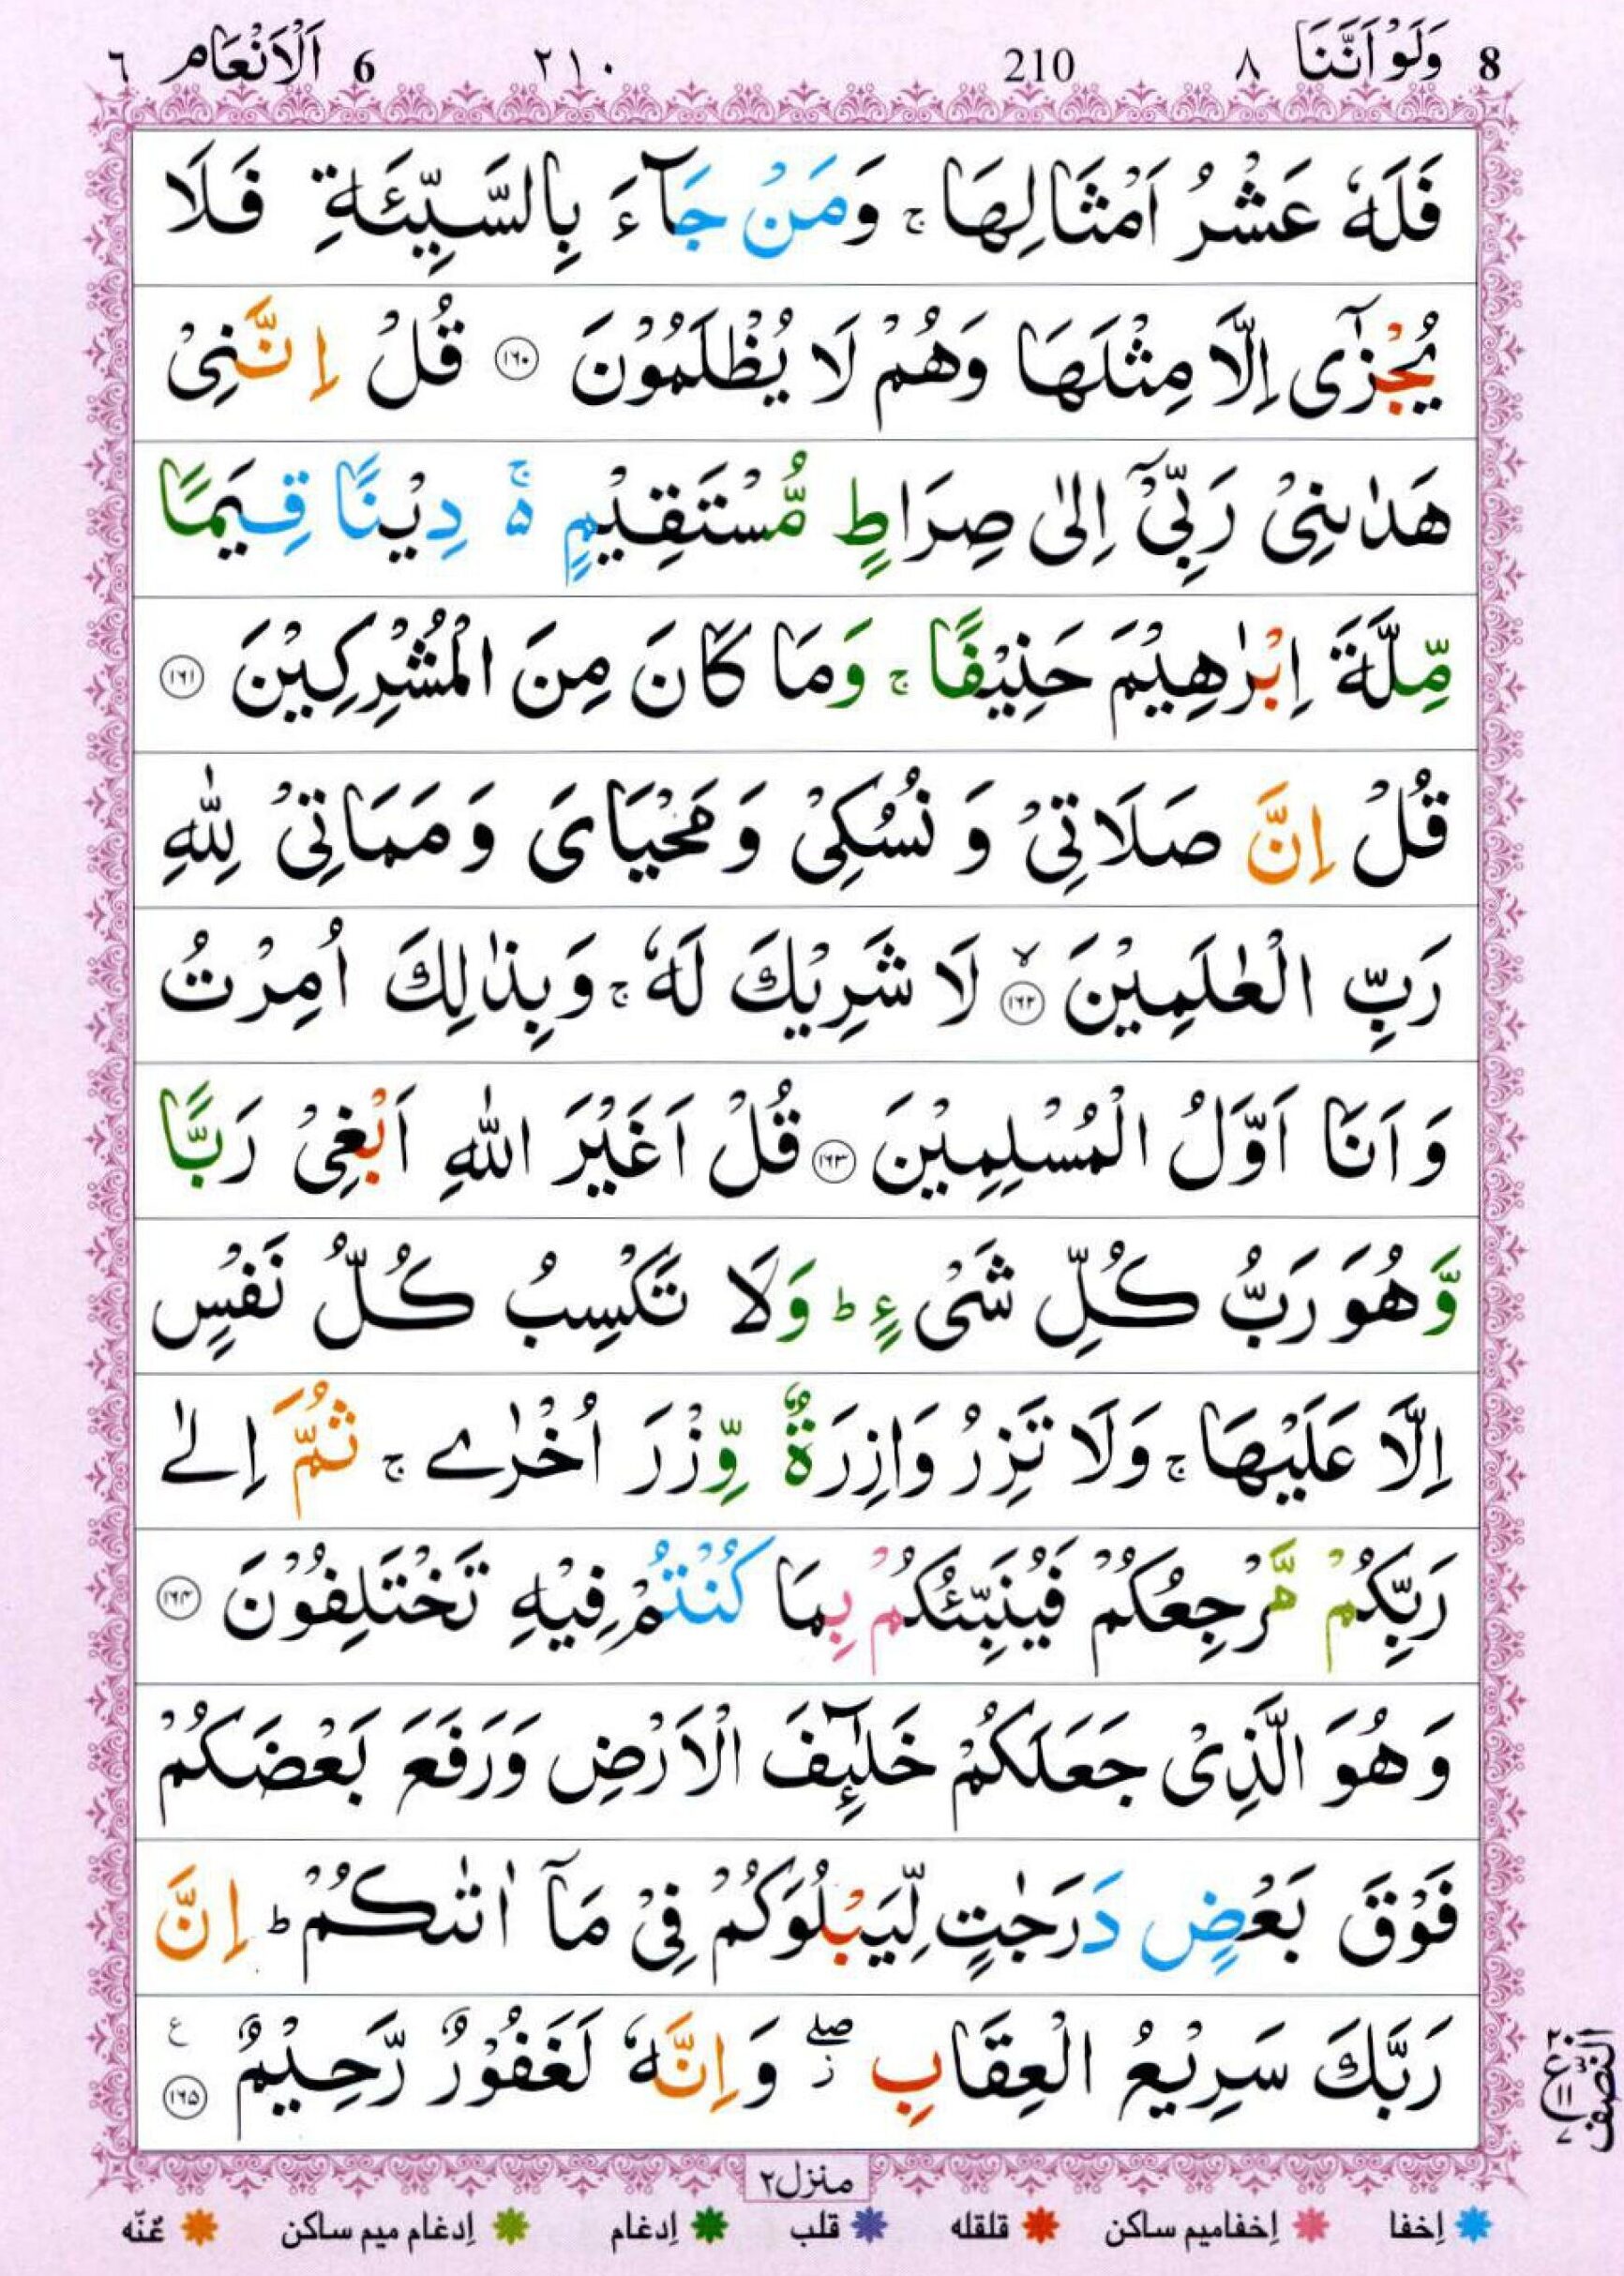 8 وَلَوْ اَنَّنَا ٨ 210 ٢١٠ 6 اَلْاَنْعَام ٦
فَلَهٗ عَشْرُ اَمْثَالِهَا ۚ وَمَنْ جَآءَ بِالسَّيِّئَةِ فَلَا
يُجْزٰٓى اِلَّا مِثْلَهَا وَهُمْ لَا يُظْلَمُوْنَ ١٦٠ قُلْ اِنَّنِىْ
هَدٰىنِىْ رَبِّىْٓ اِلٰى صِرَاطٍ مُّسْتَقِيْمٍ ۬ ۚ دِيْنًا قِيَمًا
مِّلَّةَ اِبْرٰهِيْمَ حَنِيْفًا ۚ وَمَا كَانَ مِنَ الْمُشْرِكِيْنَ ١٦١
قُلْ اِنَّ صَلَاتِىْ وَ نُسُكِىْ وَ مَحْيَاىَ وَ مَمَاتِىْ لِلّٰهِ
رَبِّ الْعٰلَمِيْنَ ۙ ١٦٢ لَا شَرِيْكَ لَهٗ ۚ وَبِذٰلِكَ اُمِرْتُ
وَ اَنَا اَوَّلُ الْمُسْلِمِيْنَ ١٦٣ قُلْ اَغَيْرَ اللّٰهِ اَبْغِىْ رَبًّا
وَّهُوَ رَبُّ كُلِّ شَىْءٍ ؕ وَلَا تَكْسِبُ كُلُّ نَفْسٍ
اِلَّا عَلَيْهَا ۚ وَلَا تَزِرُ وَازِرَةٌ وِّزْرَ اُخْرٰے ۚ ثُمَّ اِلٰے
رَبِّكُمْ مَّرْجِعُكُمْ فَيُنَبِّئُكُمْ بِمَا كُنْتُمْ فِيْهِ تَخْتَلِفُوْنَ ١٦٤
وَهُوَ الَّذِىْ جَعَلَكُمْ خَلٰٓئِفَ الْاَرْضِ وَرَفَعَ بَعْضَكُمْ
فَوْقَ بَعْضٍ دَرَجٰتٍ لِّيَبْلُوَكُمْ فِىْ مَآ اٰتٰىكُمْ ؕ اِنَّ
رَبَّكَ سَرِيْعُ الْعِقَابِ ۖ ز وَاِنَّهٗ لَغَفُوْرٌ رَّحِيْمٌ ع ١٦٥
النّصف ٢٠ ع ١١ ٧
منزل٢
إخفا إخفاميم ساكن قلقله قلب إدغام إدغام ميم ساكن غنّه